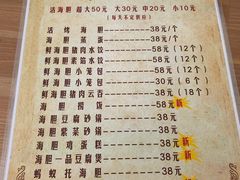 活海胆 超大50元 大30元 中20元 小10元
(每天不定供应)
活烤海胆————38元/个
海胆蒸蛋————38元/个
鲜海胆猪肉水饺————58元(12个)
鲜海胆素馅水饺————58元(12个)
鲜海胆小笼包————58元(12个)
鲜海胆小笼包————30元(6个)
鲜海胆猪肉云吞————38元(18个)
海胆捞饭————58元 新
海胆豆腐砂锅————38元
海胆紫菜砂锅————38元
海胆鸡蛋糕————38元 新
海胆一品豆腐煲————38元 新
蚂蚁托海胆————38元 新